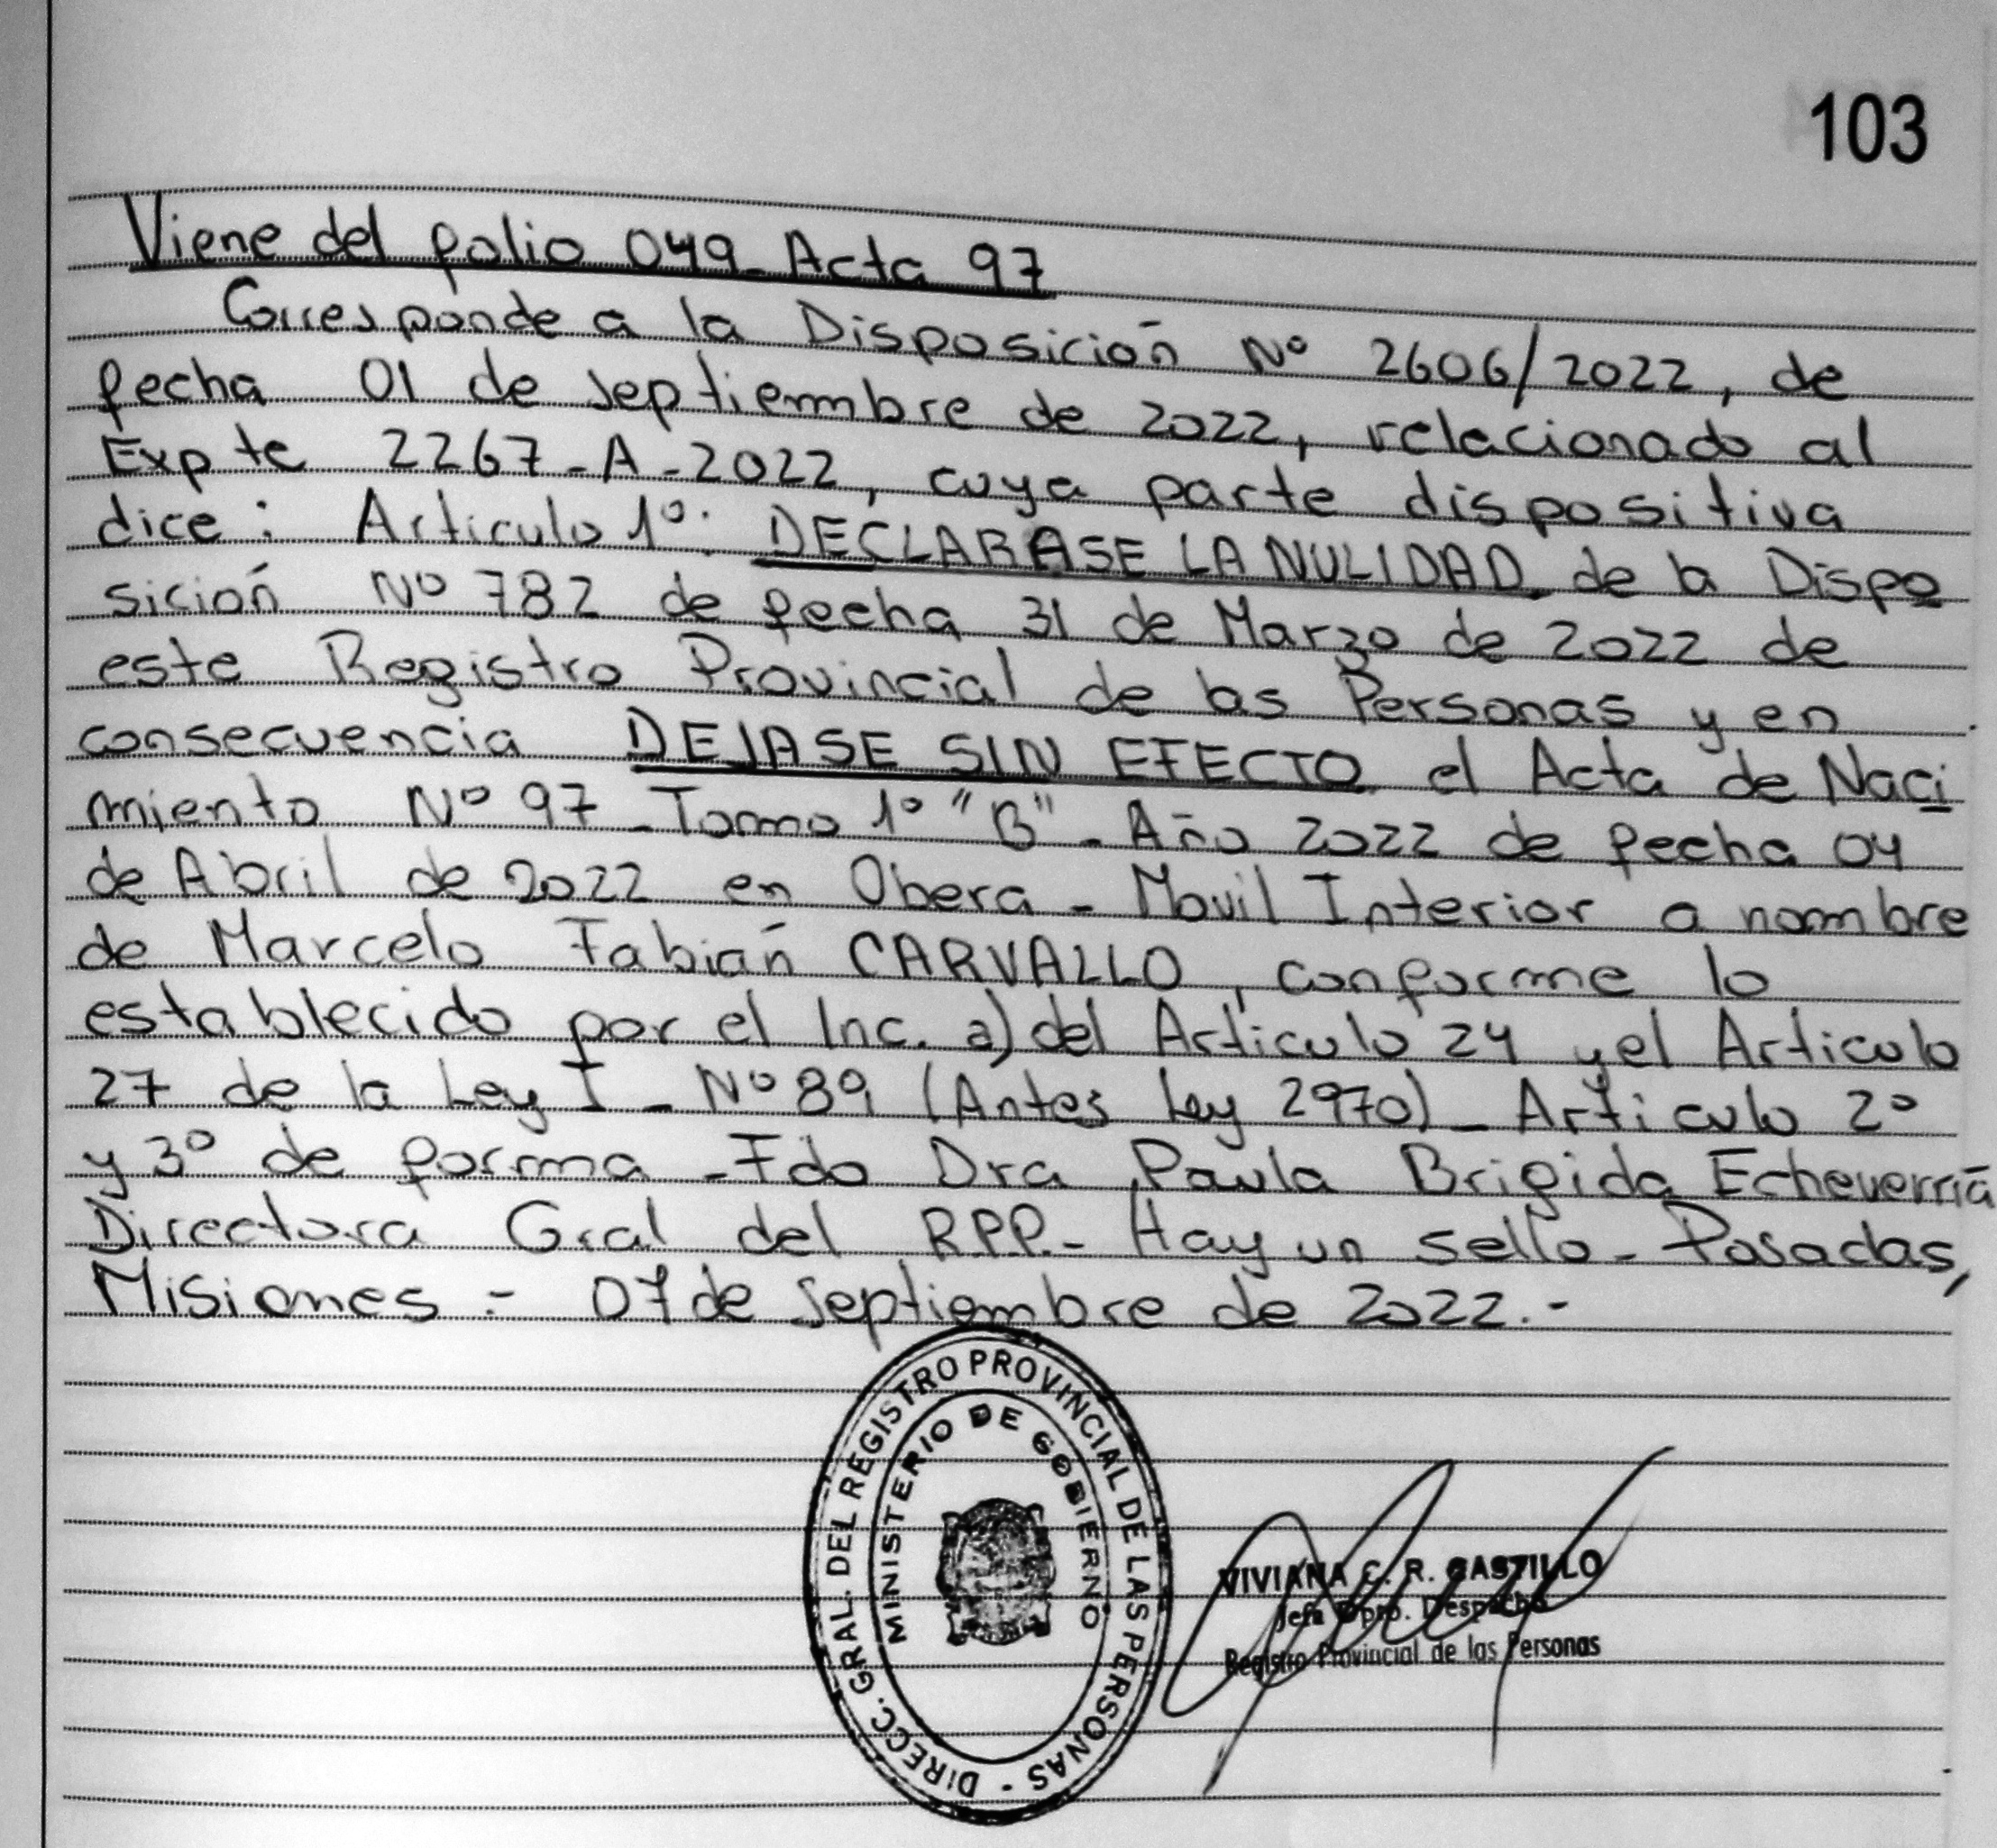 103
Viene del folio 049_ Acta 97
Corresponde a la Disposición Nº 2606/2022, de
fecha 01 de septiembre de 2022, relacionado al
Expte 2267-A-2022, cuya parte dispositiva
dice: Articulo 1º: DECLARASE LA NULIDAD de la Dispo
sición Nº 782 de fecha 31 de Marzo de 2022 de
este Registro Provincial de las Personas y en
consecuencia DEJASE SIN EFECTO el Acta de Naci
miento Nº 97 _ Tomo 1º "B" _ Año 2022 de fecha 04
de Abril de 2022 en Obera - Movil Interior a nombre
de Marcelo Fabián CARVALLO, conforme lo
establecido por el Inc. a) del Articulo 24 y el Articulo
27 de la Ley I _ Nº 89 (Antes Ley 2970) _ Articulo 2º
y 3º de forma _ Fdo Dra Paula Brigida Echeverría
Directora Gral del R.P.P.- Hay un sello - Posadas,
Misiones - 07 de septiembre de 2022.-
DIRECC. GRAL. DEL REGISTRO PROVINCIAL DE LAS PERSONAS -
MINISTERIO DE GOBIERNO
VIVIANA C. R. CASTILLO
Jefa Dpto. Despacho
Registro Provincial de las Personas